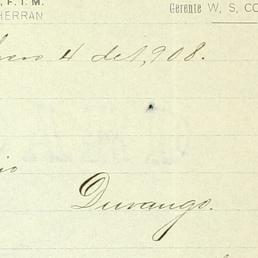 , F. I. M.
HERRAN
Gerente W, S, CO
ero 4 de 1,908.
io
Durango.